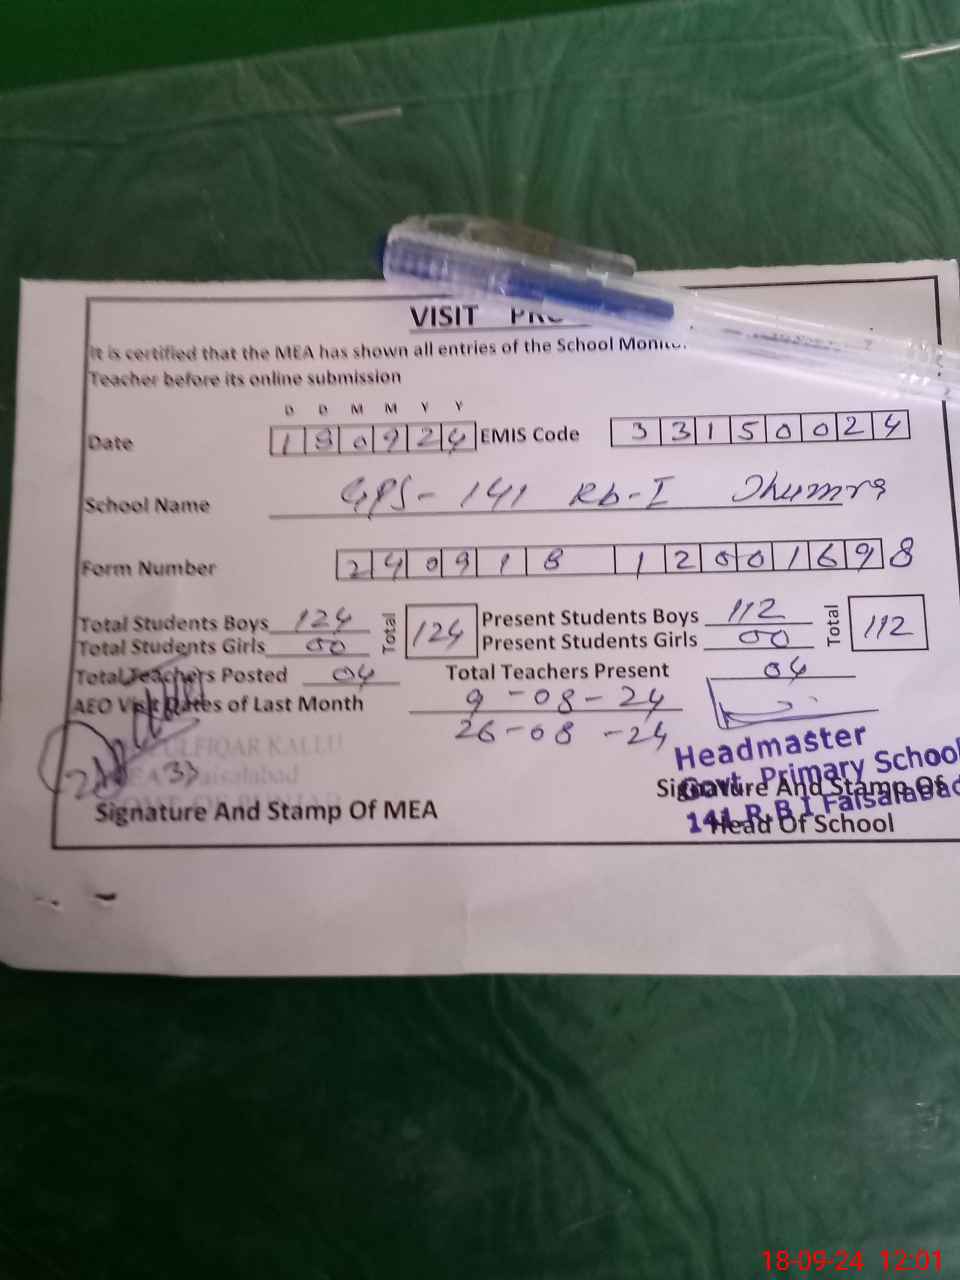 VISIT
It is certified that the MEA has shown all entries of the School
Teacher before its online submission
D D M M Y Y
Date 180924 EMIS Code 33150024
School Name GPS-141 Rb-I Jhumra
Form Number 240918 12001698
Total Students Boys 124 Total 124 Present Students Boys 112 Total 112
Total Students Girls 00 Present Students Girls 00
Total Teachers Posted 04 Total Teachers Present 04
AEO Visit Dates of Last Month 9-08-24
26-08-24
ZULFIQAR KALLU
MEA Faisalabad
Signature And Stamp Of MEA
Headmaster
Govt. Primary School
141 R.B I Faisalabad
Signature And Stamp Of
Head Of School
18-09-24 12:01